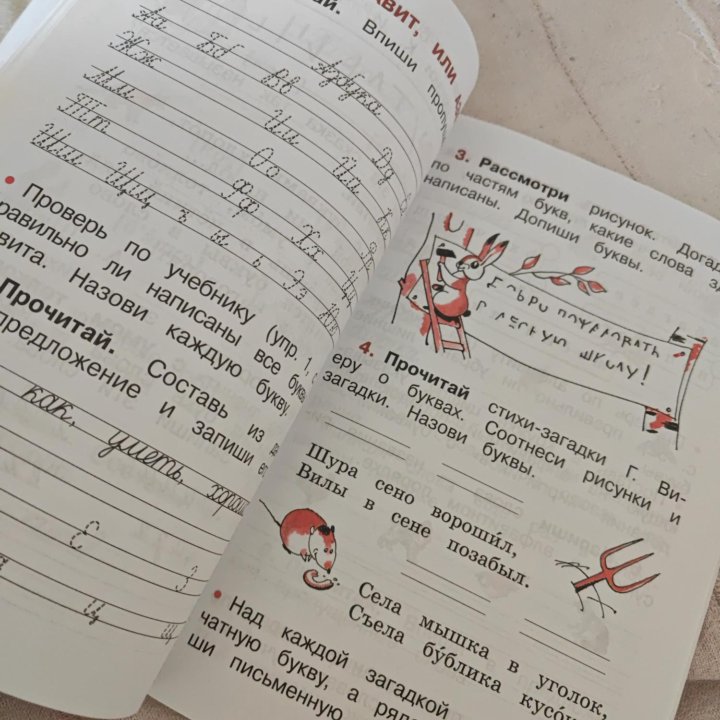 АВИТ, ИЛИ А
ай. Впиши пропу
Аа Бб Вв Азбука
Жж Дд
Лл Ии Йй
Тт Оо
Фф Хх
Шш Щщ ъ ы ь Ээ Юю
• Проверь по учебнику (упр. 1, с
равильно ли написаны все буквы
вита. Назови каждую букву.
Прочитай. Составь из да
предложение и запиши ег
как, уметь, хорошо
Е З
Ц Щ
3. Рассмотри рисунок. Догад
по частям букв, какие слова зд
написаны. Допиши буквы.
Добро пожаловать
в лесную школу!
4. Прочитай стихи-загадки Г. Ви-
еру о буквах. Соотнеси рисунки и
загадки. Назови буквы.
Шура сено вороши́л,
Вилы в сене позабыл.
Села мышка в уголок,
Съела бу́блика кусо́
• Над каждой загадкой
чатную букву, а рядо
ши письменную